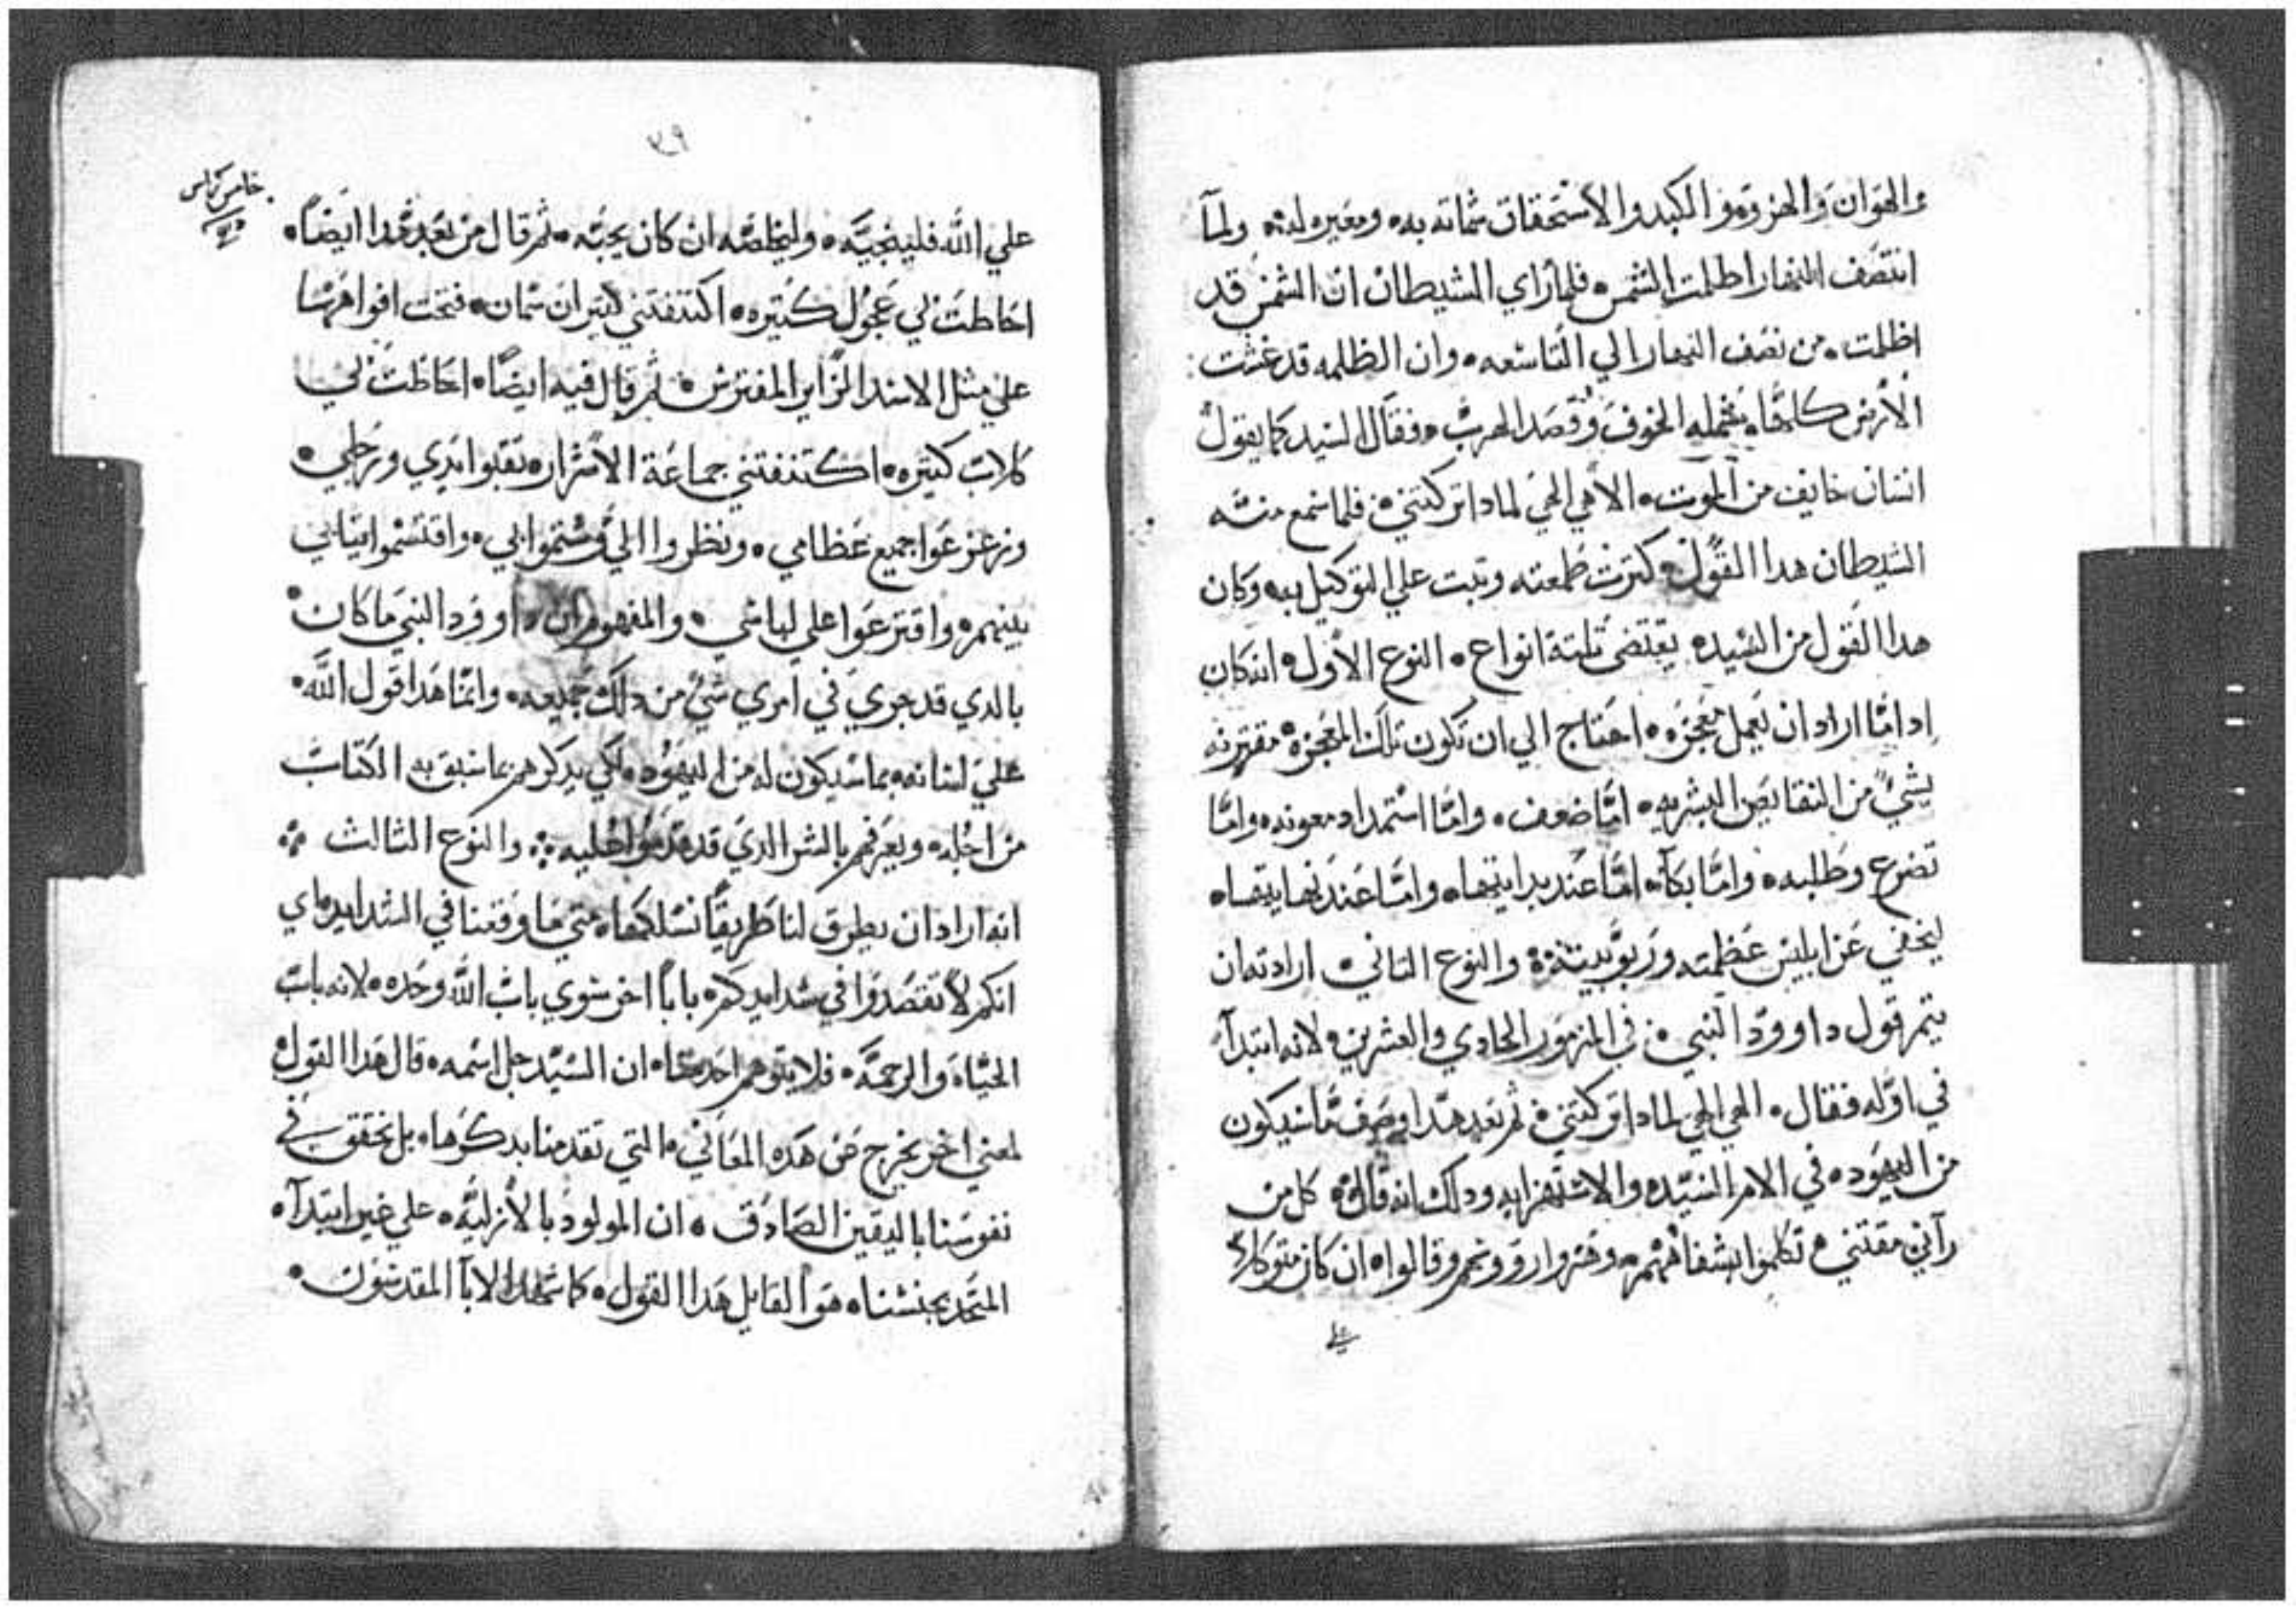 والهوان والهزو وو الكيد والاستحقاق شماته به ومعيره له ولما
انتصف النهار اظلمت الشمس فلما راي الشيطان ان الشمس قد
اظلمت من نصف النهار الي التاسعه وان الظلمه قد غشت
الارض كلها شمله الخوف وقصد الهرب فقال السيد كما يقول
انسان خايف من الموت الاهي الهي لمادا تركتني فلما سمع منه
الشيطان هدا القول كترت طمعته وتبت علي التوكيل به وكان
هدا القول من السيد يقتضى تلتة انواع النوع الاول انه كان
ادا ما اراد ان يعمل معجزه احتاج الي ان تكون تلك المعجزه مقترنه
بشي من النقايص البشريه اما ضعف واما استمداد معونه واما
تضرع وطلبه واما بكآ اما عند بدايتها واما عند نهايتها
ليخفي عن ابليس عظمته وربوبيته والنوع التاني ارادته ان
يتم قول داوود النبي في المزمور الحادي والعشرين لانه ابتدآ
في اوله فقال الهي الهي لمادا تركتني تم بعد هدا وصف ما سيكون
من اليهود في الامر السيد والاستهزا به ودلك انه قال كل من
رآني مقتني تكلموا بشفاههم وهزوا رووسهم وقالوا ان كان متوكلا
علي
٣٩
خامس كراس
علي الله فلينجيه وليخلصه ان كان يحبه ثم قال من بعد هدا ايضا
احاطت بي عجول كتيره اكتنفتني تيران سمان فتحت افواهها
علي مثل الاسد الزاير المفترس ثم قال فيه ايضا احاطت بي
كلاب كتيره اكتنفتني جماعة الاشرار تقبوا يدي ورجلي
وزعزعوا جميع عظامي ونظروا الي وشتموا بي واقتسموا تيابي
بينهم واقترعوا علي لباسي والمفهوم ان داوود النبي ما كان
بالدي قد جري في امري شي من دلك جميعه وانما هدا قول الله
علي لسانه بما سيكون له من اليهود لكي يدكرهم بما سبق به الكتاب
من اجله ويعرفهم بالشر الدي قدموا عليه والنوع الثالث
انه اراد ان يطرق لنا طريقا نسلكها متي ما وقعنا في الشدايد اي
انكم لا تقصدوا في شدايدكم بابا اخر سوي باب الله وحده لانه باب
الحياه والرحمه فلا يتوهم احد منا ان السيد جل اسمه قال هدا القول
لمعني اخر يخرج عن هده المعاني التي تقدمنا بدكرها بل نحقق في
نفوسنا باليقين الصادق ان المولود بالازليه علي غير ابتدآ
المتحد بجنسنا هو القايل هدا القول كما شهد الابآ المقدسون